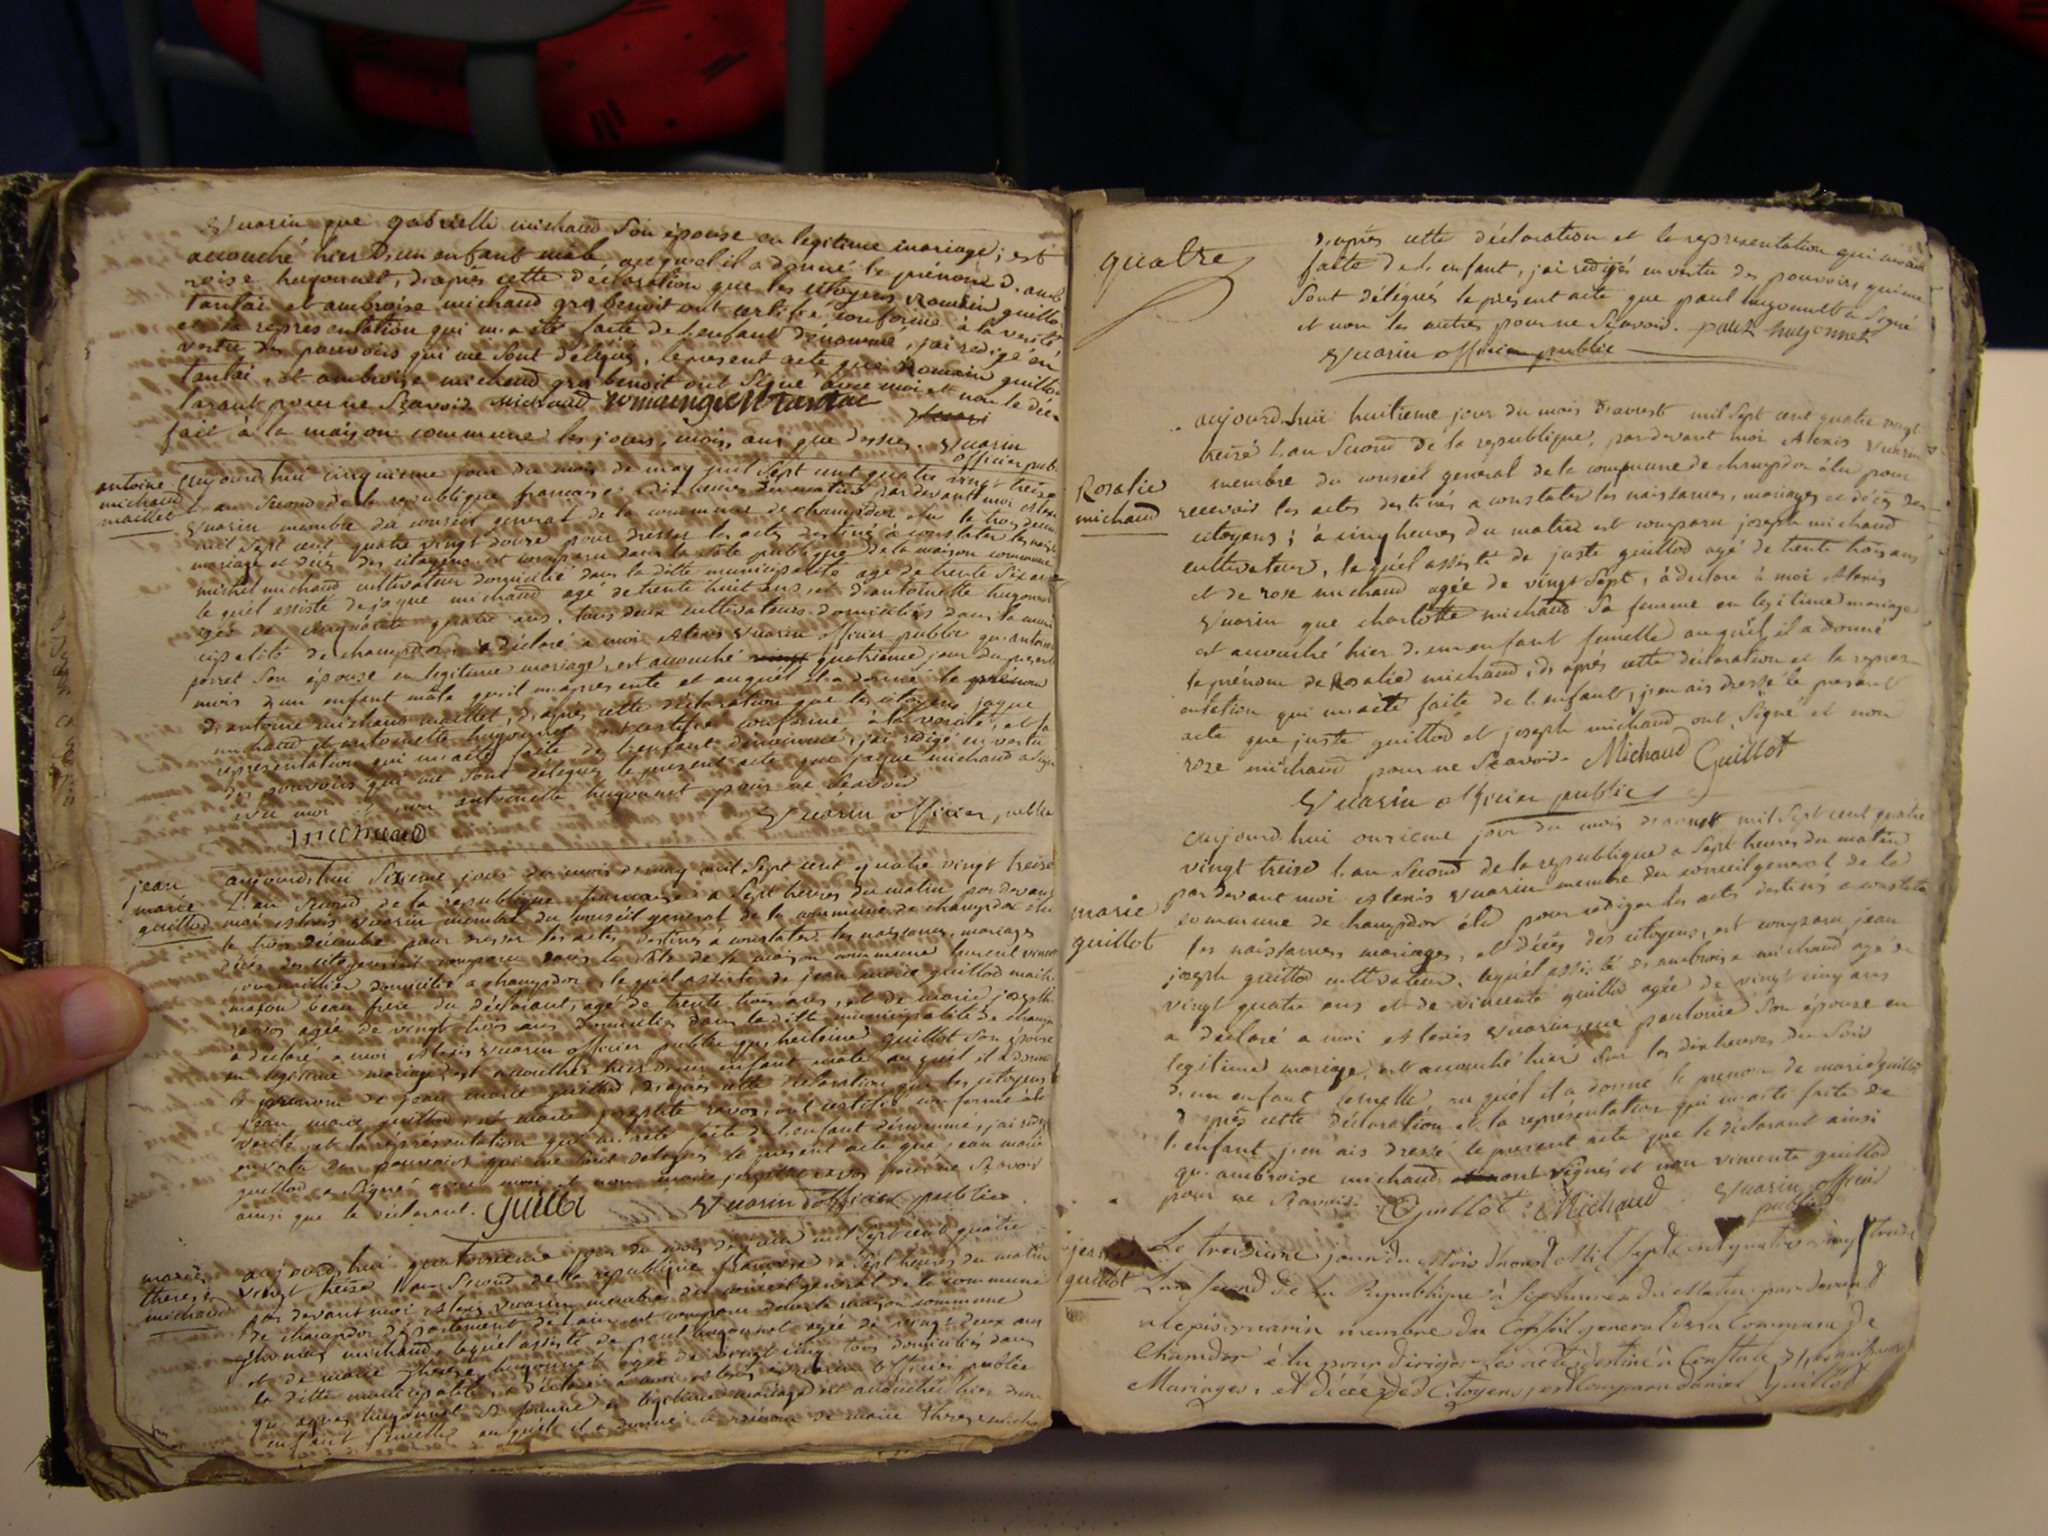 Vuarin que gabrielle michaud Son épouse en legitime mariage; est
accouché hier d'un enfant male auquel il a donné le prénom d. amb
roise hugonnet, d'après cette déclaration que les citoyens Romain guillo
tantai et ambroise michaud gros benoit ont certifié conforme à la verité
et la representation qui m'a été faite de l.enfant dénommé, j'ai redigé en
vertu des pouvoirs qui me sont délégués, le present acte que Romain guillo
tantai, et ambroise michaud gros benoit ont Signé avec moi et non le décla
larant pour ne Scavoir Michaud romaingillotantai
fait à la maison commune les jours, mois, ans que dessus. Vuarin
officier pub.
antoine
michaud
maillet
aujourd'hui cinquieme jour du mois de may mil Sept cent quatre vingt treise
l. an Second de la republique française à dix heures du matin par devant moi alexis
Vuarin membre du conseil general de la commune de champdor élu le trois decem
mil Sept cent quatre vingt douse pour dresser les actes destinés à constater les naiss
mariages et décès des citoyens est comparu dans la Sale publique de la maison commune
michel michaud cultivateur domicilié dans la ditte municipalité agé de trente Six ans
le quel assisté de jaque michaud agé de trente huit ans, et d'antoinette hugonnet
agée de cinquante quatre ans, tous deux cultivateurs domiciliés dans la muni
cipalité de champdor, a déclaré à moi Alexis Vuarin officier public qu'antoinette
perret Son épouse en legitime mariage, est accouché quatrieme jour du present
mois d'un enfant mâle qu'il m'a presenté et auquel il a donné le prenom
d. antoine michaud maillet, d'après cette déclaration que les citoyens jaque
michaud et antoinette hugonnet ont certifié conforme à la verité, et la
representation qui m'a été faite de l'enfant dénommé, j'ai redigé en vertu
des pouvoirs qui me sont délégués le present acte que jaque michaud a Signé
avec moi et non antoinette hugonnet pour ne Scavoir
michaud Vuarin officier public
jean
marie
guillod
aujourd'hui Sixieme jour du mois de may mil Sept cent quatre vingt treise
l. an Second de la république française a Sept heures du matin par devant
moi alexis Vuarin membre du conseil general de la commune de champdor élu
le trois decembre pour dresser les actes destinés à constater les naissances, mariages
décès des citoyens est comparu dans la Sale de la maison commune
journallier domicilié a champdor, le quel assisté de jean marie guillod maitre
masson beau frere du déclarant, agé de trente trois ans, et de marie josephte
ravos agée de vingt trois ans domiciliés dans la ditte municipalité de champ
a déclaré a moi alexis Vuarin officier public que guillot Son épouse
en legitime mariage, est accouchée hier d'un enfant male au quel il a donné
le prenom de jean marie guillod, d'après cette déclaration que les citoyens
jean marie guillod, et marie josephte ravos, ont certifié conforme à la
verité, et la representation qui m'a été faite de l.enfant dénommé, j'ai redigé
en vertu des pouvoirs qui me sont délégués le present acte que jean marie
guillod a Signé avec moi et non marie josephte ravos pour ne Scavoir
ainsi que le déclarant. guillot Vuarin officier public
marie
therese
michaud
aujourd'hui quatorsieme jour du mois de mil Sept cent quatre
vingt treise l'an Second de la république françoise a Sept heures du matin
par devant moi alexis Vuarin membre du conseil general de la commune
de champdor département de l'ain, est comparu dans la maison commune
thomas michaud, le quel assisté de paul hugonnet agé de vingt deux ans
et de marie therese hugonnet agée de vingt cinq tous domiciliés dans
la ditte municipalité, a déclaré à moi alexis Vuarin officier public
que hugonnet Sa femme en legitime mariage est accouché hier d'un
enfant femelle auquel il a donné le prénom de marie therese micha
quatre
d'après cette déclaration et la representation qui m'a été
faite de l. enfant, j'ai redigés en vertu des pouvoirs qui me
Sont délégués le present acte que paul hugonnet a Signé
et non les autres pour ne Scavoir. paul hugonnet
Vuarin officier public
Rosalie
michaud
aujourd.hui huitieme jour du mois d'aoust mil Sept cent quatre vingt
treise l. an Second de la republique, par devant moi Alexis Vuarin
membre du conseil general de la commune de champdor élu pour
recevoir les actes destinés a constater les naissances, mariages et décès des
citoyens; à cinq heures du matin est comparu joseph michaud
cultivateur, le quel assisté de juste guillod agé de trente trois ans
et de rose michaud agée de vingt Sept, à déclaré à moi Alexis
Vuarin que charlotte michaud Sa femme en legitime mariage
est accouché hier d. un enfant femelle auquel il a donné
le prénom de Rosalie michaud, d'après cette déclaration et la repres
entation qui m'a été faite de l. enfant, j'en ais dressé le present
acte que juste guillod et joseph michaud ont Signé et non
roze michaud pour ne Scavoir. Michaud Guillot
Vuarin officier public
marie
guillot
aujourd.hui onsieme jour du mois d'aoust mil Sept cent quatre
vingt treise l. an Second de la republique a Sept heures du matin
par devant moi alexis Vuarin membre du conseil general de la
commune de champdor élu pour rediger les actes destinés a constater
les naissances, mariages, et décès des citoyens, est comparu jean
joseph guillod cultivateur, lequel assisté d. ambroise michaud agé de
vingt quatre ans et de vincente guillod agée de vingt cinq ans
a déclaré a moi alexis Vuarin que Son épouse en
legitime mariage, est accouché hier Sur les dix heures du Soir
d. un enfant femelle au quel il a donné le prenom de marie guillod
d'après cette déclaration et la representation qui m'a été faite de
l. enfant j'en ais dressé le present acte que le déclarant ainsi
qu. ambroise michaud ont Signés et non vincente guillod
pour ne Scavoir. Guillot Michaud Vuarin officier
public
jean
guillot
Le treizieme jour du Mois Daoust Mil Sept cent quatre vingt treize
L'an second de la Republique à Sept heures du Matin par devant
alexis vuarin membre du Conseil general de la Commune De
Chamdor élu pour diriger les actes destiné à Constater
Mariages, et décès des Citoyens, est Comparu daniel Guillot